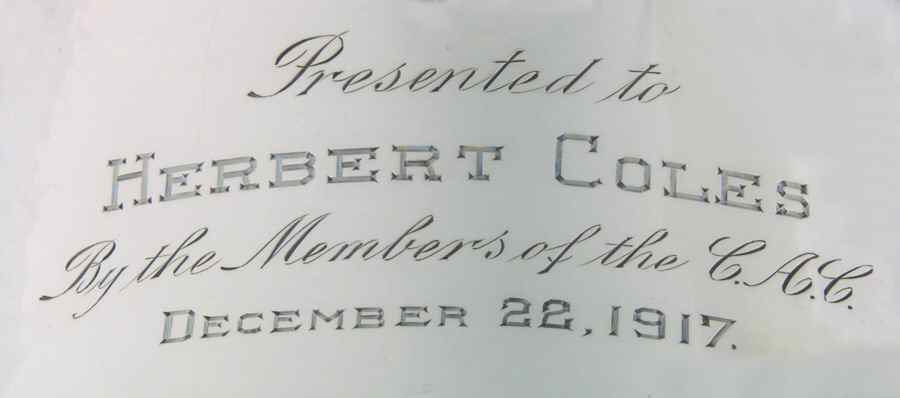 Presented to
HERBERT COLES
By the Members of the C.A.C.
DECEMBER 22, 1917.